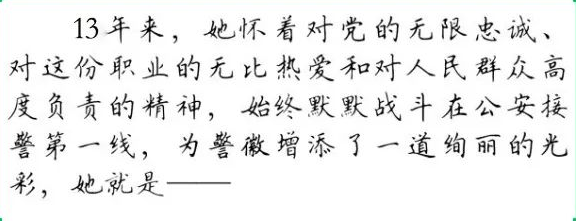 13年来，她怀着对党的无限忠诚、
对这份职业的无比热爱和对人民群众高
度负责的精神，始终默默战斗在公安接
警第一线，为警徽增添了一道绚丽的光
彩，她就是——